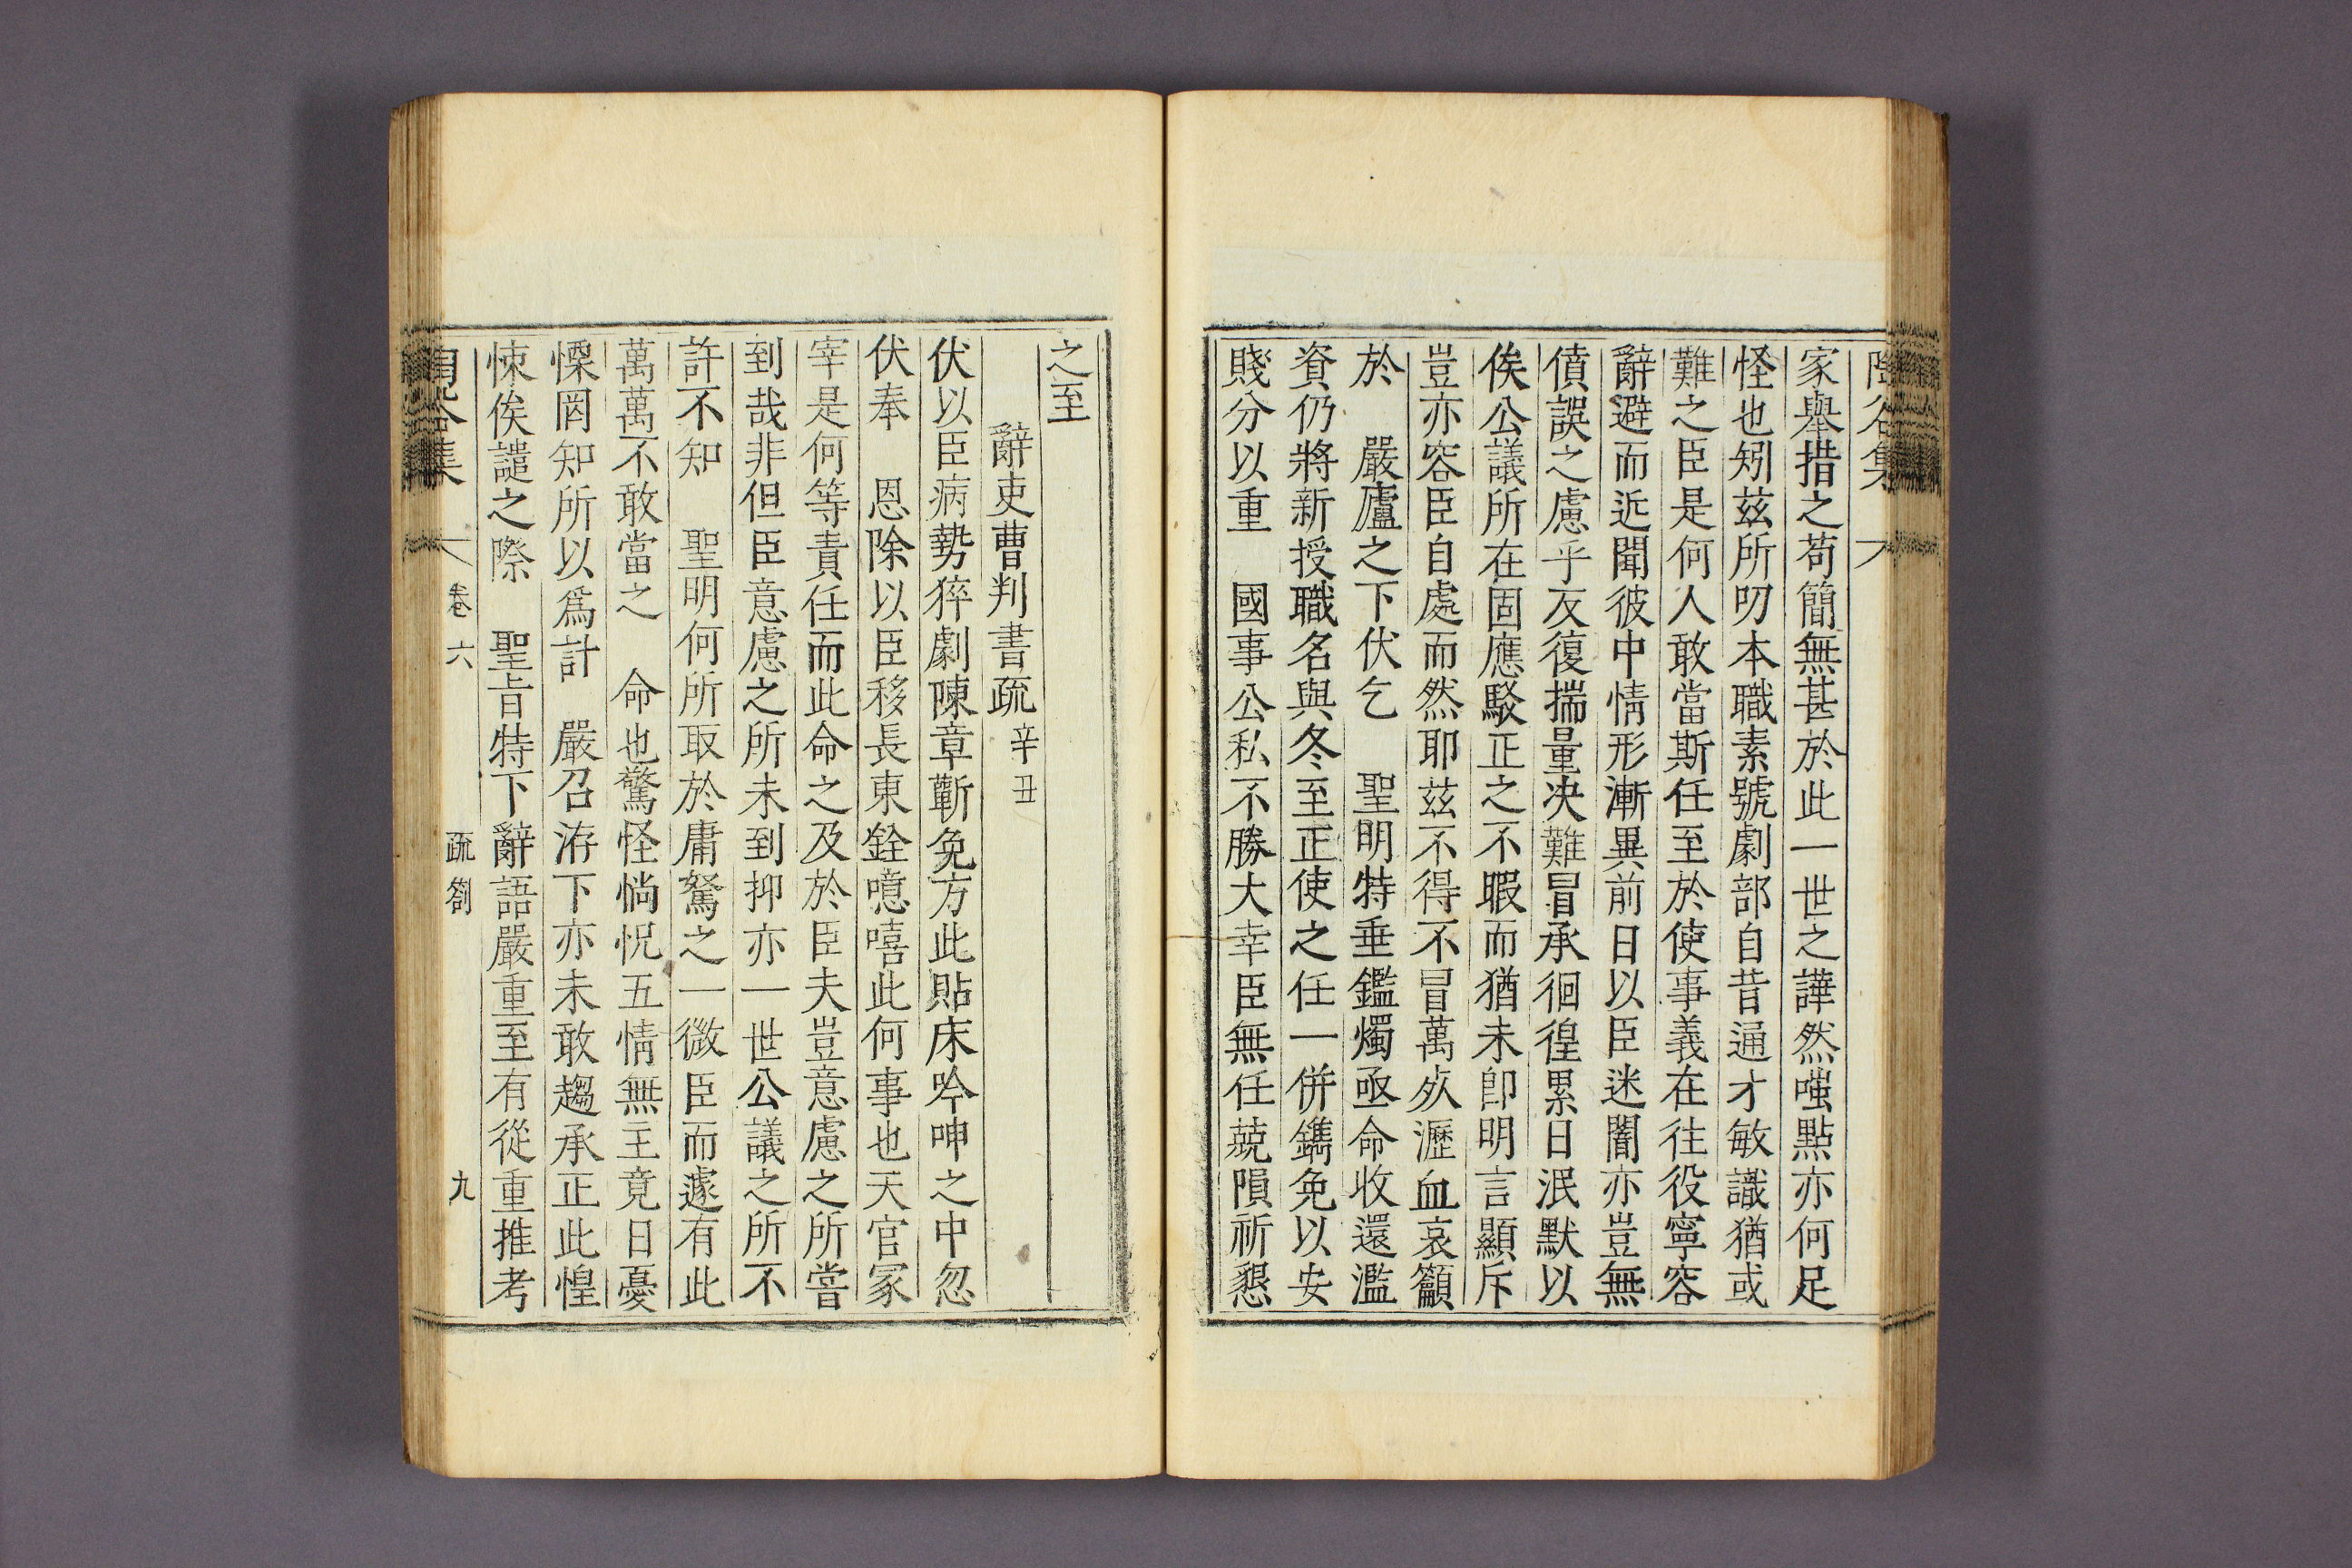 家擧措之苟簡無甚於此一世之譁然嗤點亦何足
怪也矧玆所叨本職素號劇部自昔通才敏識猶或
難之臣是何人敢當斯任至於使事義在往役寧容
辭避而近聞彼中情形漸異前日以臣迷闇亦豈無
僨誤之慮乎反復揣量决難冒承徊徨累日泯默以
俟公議所在固應駁正之不暇而猶未卽明言顯斥
豈亦容臣自處而然耶玆不得不冒萬死瀝血哀籲
於 嚴廬之下伏乞 聖明特垂鑑燭亟命收還濫
資仍將新授職名與冬至正使之任一併鐫免以安
賤分以重 國事公私不勝大幸臣無任兢隕祈懇
之至
辭吏曹判書疏 辛丑
伏以臣病勢猝劇陳章蘄免方此貼床吟呻之中忽
伏奉 恩除以臣移長東銓噫嘻此何事也天官冢
宰是何等責任而此命之及於臣夫豈意慮之所嘗
到哉非但臣意慮之所未到抑亦一世公議之所不
許不知 聖明何所取於庸駑之一微臣而遽有此
萬萬不敢當之 命也驚怪惝怳五情無主竟日憂
慄罔知所以爲計 嚴召洊下亦未敢趨承正此惶
悚俟譴之際 聖旨特下辭語嚴重至有從重推考
卷六 疏箚 九